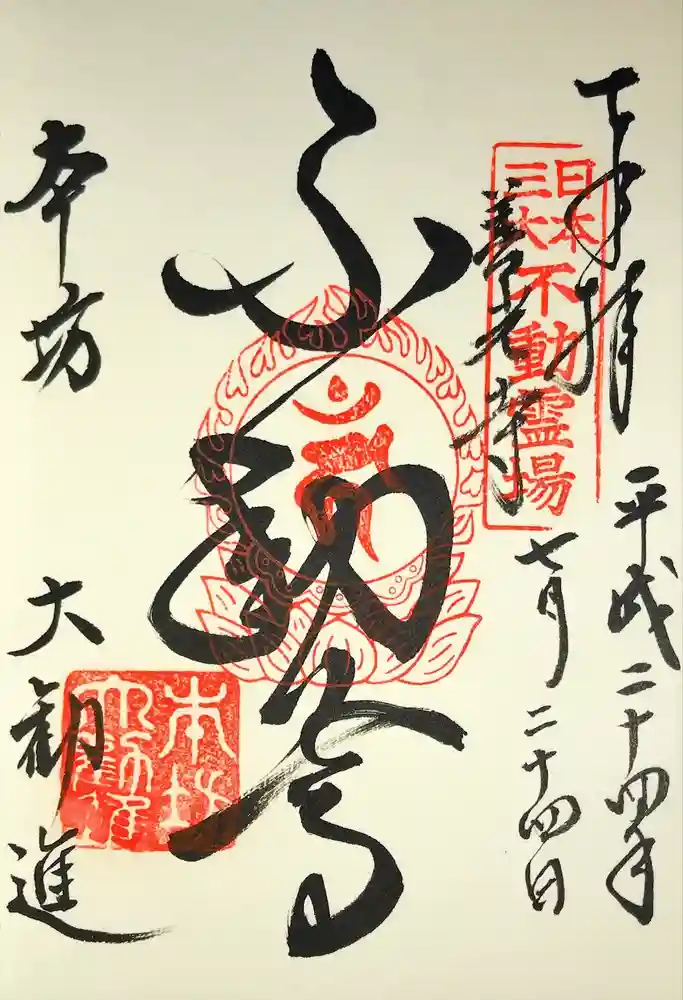 奉拝
平成二十四年
七月二十四日
日本
三大
不動霊場
善光寺
不動尊
本坊
大勧進
本坊
大勧進